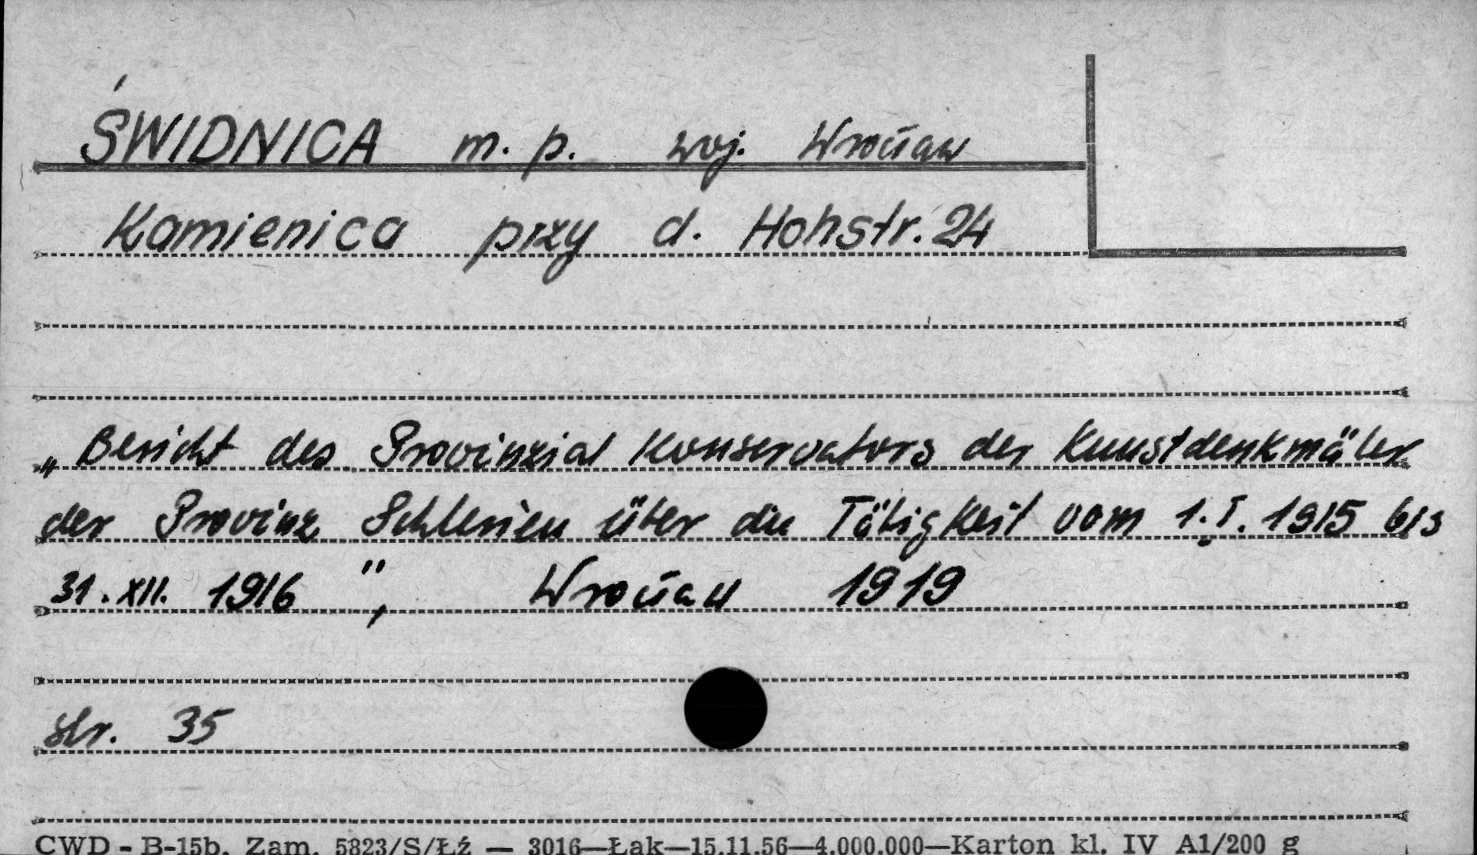 ŚWIDNICA m. p. woj. Wrocław
Kamienica przy d. Hohstr. 24
„Bericht des Provinzial Konservators der Kunstdenkmäler
der Provinz Schlesien über die Tätigkeit vom 1. I. 1915 bis
31. XII. 1916", Wrocław 1919
str. 35
CWD - B-15b. Zam. 5823/S/Łź — 3016—Łak—15.11.56—4.000.000—Karton kl. IV A1/200 g